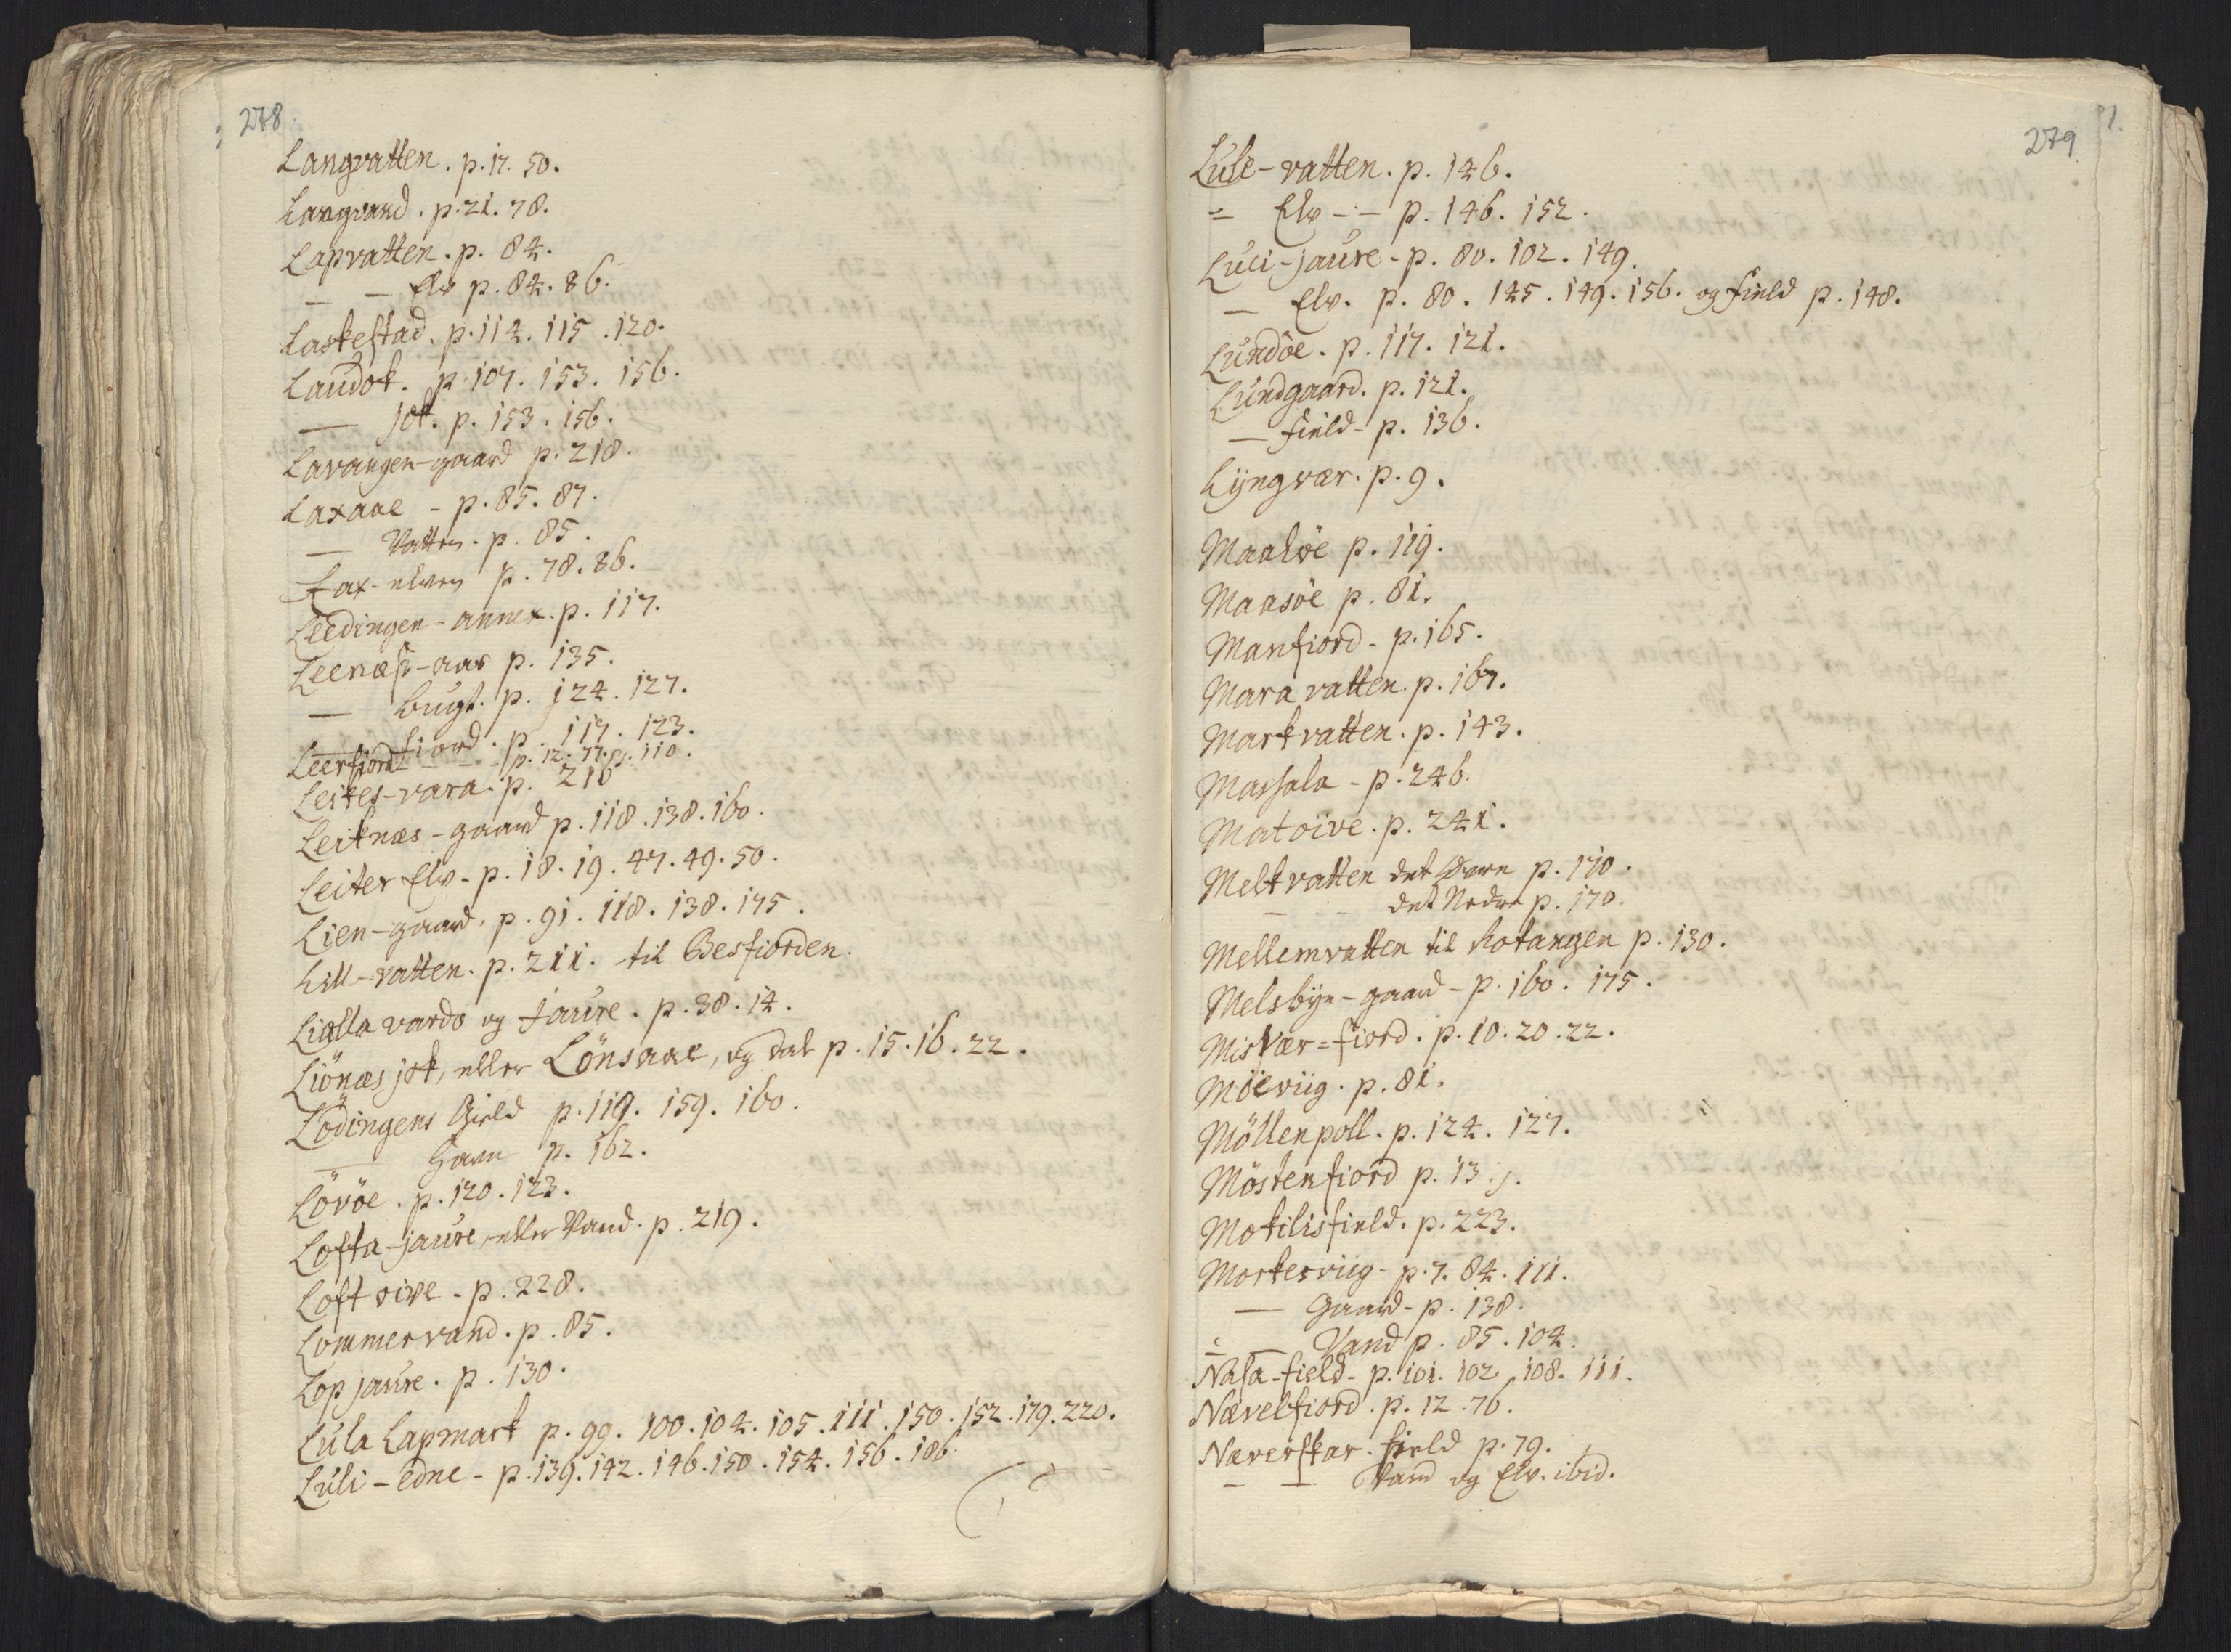 278
Langvatten. p. 17. 50.
Langvand. p. 21. 78.
Lapvatten. p. 84.
— — Elv p. 84. 86.
Laskestad. p. 114. 115. 120.
Laudok. p. 107. 153. 156.
— jok. p. 153. 156.
Lavangen-gaard p. 218.
Laxaae - p. 85. 87.
— Vatten. p. 85.
Lax-elven p. 78. 86.
Leedingen-annex. p. 117.
Leenæss-aas p. 135.
— Bugt. p. 124. 127.
— fiord. p. 117. 123.
Leerfiord - - - p. 12. 77. p. 110.
Leikes-vara. p. 216
Leiknæs-gaard p. 118. 138. 160.
Leiter Elv - p. 18. 19. 47. 49. 50.
Lien-gaard. p. 91. 118. 138. 175.
Lill-vatten. p. 211. til Besfiorden.
Lialla vardo og Jaure. p. 38. 14.
Liönæs jok, eller Lönsaae, og dal p. 15. 16. 22.
Lödingens Gield p. 119. 159. 160.
— Havn p. 162.
Lövöe. p. 120. 123.
Lofta-jaure, eller Vand. p. 219.
Loft oive - p. 228.
Lommervand. p. 85.
Lop jaure. p. 130.
Lula Lapmark p. 99. 100. 104. 105. 111. 150. 152. 179. 220.
Luli-edne - p. 139. 142. 146. 150. 154. 156. 186.
279
Lule-vatten. p. 146.
= Elv - - p. 146. 152.
Luli-jaure - p. 80. 102. 149.
— Elv. p. 80. 145. 149. 156. og field p. 148.
Lundöe. p. 117. 121.
Lundgaard. p. 121.
— field - p. 136.
Lyngvær. p. 9.
Maalöe p. 119.
Maasöe p. 81.
Manfiord - p. 165.
Mara vatten. p. 167.
Markvatten. p. 143.
Massala - p. 246.
Matoive. p. 241.
Melkvatten det Övre p. 170.
— - - det Nedre p. 170.
Mellemvatten til hotangen p. 130.
Melsbye-gaard - p. 160. 175.
Misvær=fiord. p. 10. 20. 22.
Möeviig. p. 81.
Möllenpoll. p. 124. 127.
Möstenfiord p. 13.
Mokilisfield. p. 223.
Morkesviig - p. 7. 84. 111.
— Gaard - p. 138.
= — Vand p. 85. 104.
Nasa-field - p. 101. 102. 108. 111.
Nævelfiord. p. 12. 76.
Næverskar. field p. 79.
— — Vand og Elv. ibid.